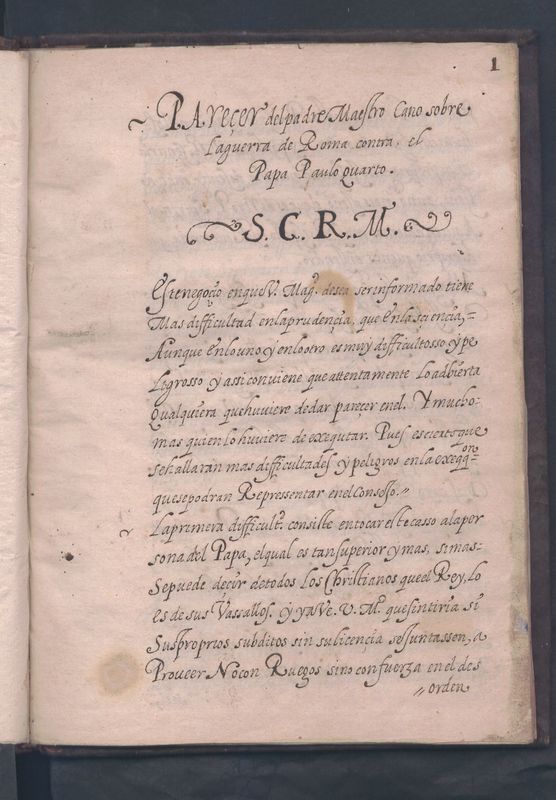 1
PAreçer del padre Maestro Cano sobre
La guerra de Roma contra, el
Papa Paulo Quarto.
S. C. R. M.
Este negoçio en que V. Magᵗ. desea ser informado tiene
Mas difficultad en la prudencia, que en la sciencia,
Aunque en lo uno y en lo otro es muy difficultosso y pe
ligrosso y assi conviene que attentamente lo adbierta
Qualquiera que huviere de dar parecer en el. Y mucho-
mas quien lo huviere de exequtar. Pues es cierto que
se hallaran mas difficultades y peligros en la exeqᵒⁿ
que se podran Representar en el Consejo.
La primera difficultᵈ. consiste en tocar este casso a la per
sona del Papa, el qual es tan superior y mas, si mas-
Se puede decir de todos los Christianos que el Rey, lo
es de sus Vassallos. Y ya ve. V. Mᵗ. que sintiria si
Sus proprios subditos sin su licencia se juntassen, a
Proveer No con Ruegos sino con fuerza en el des
orden